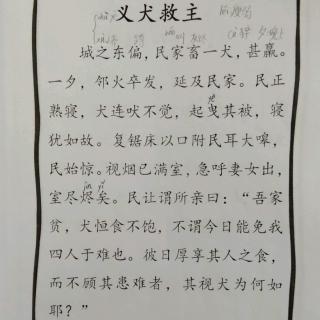 义犬救主
城之东偏，民家畜一犬，甚羸。
一夕，邻火卒发，延及民家。民正
熟寝，犬连吠不觉，起曳其被，寝
犹如故。复锯床以口附民耳大嗥，
民始惊。视烟已满室，急呼妻女出，
室尽烬矣。民让谓所亲曰：“吾家
贫，犬恒食不饱，不谓今日能免我
四人于难也。彼日厚享其人之食，
而不顾其患难者，其视犬为何如
耶？”